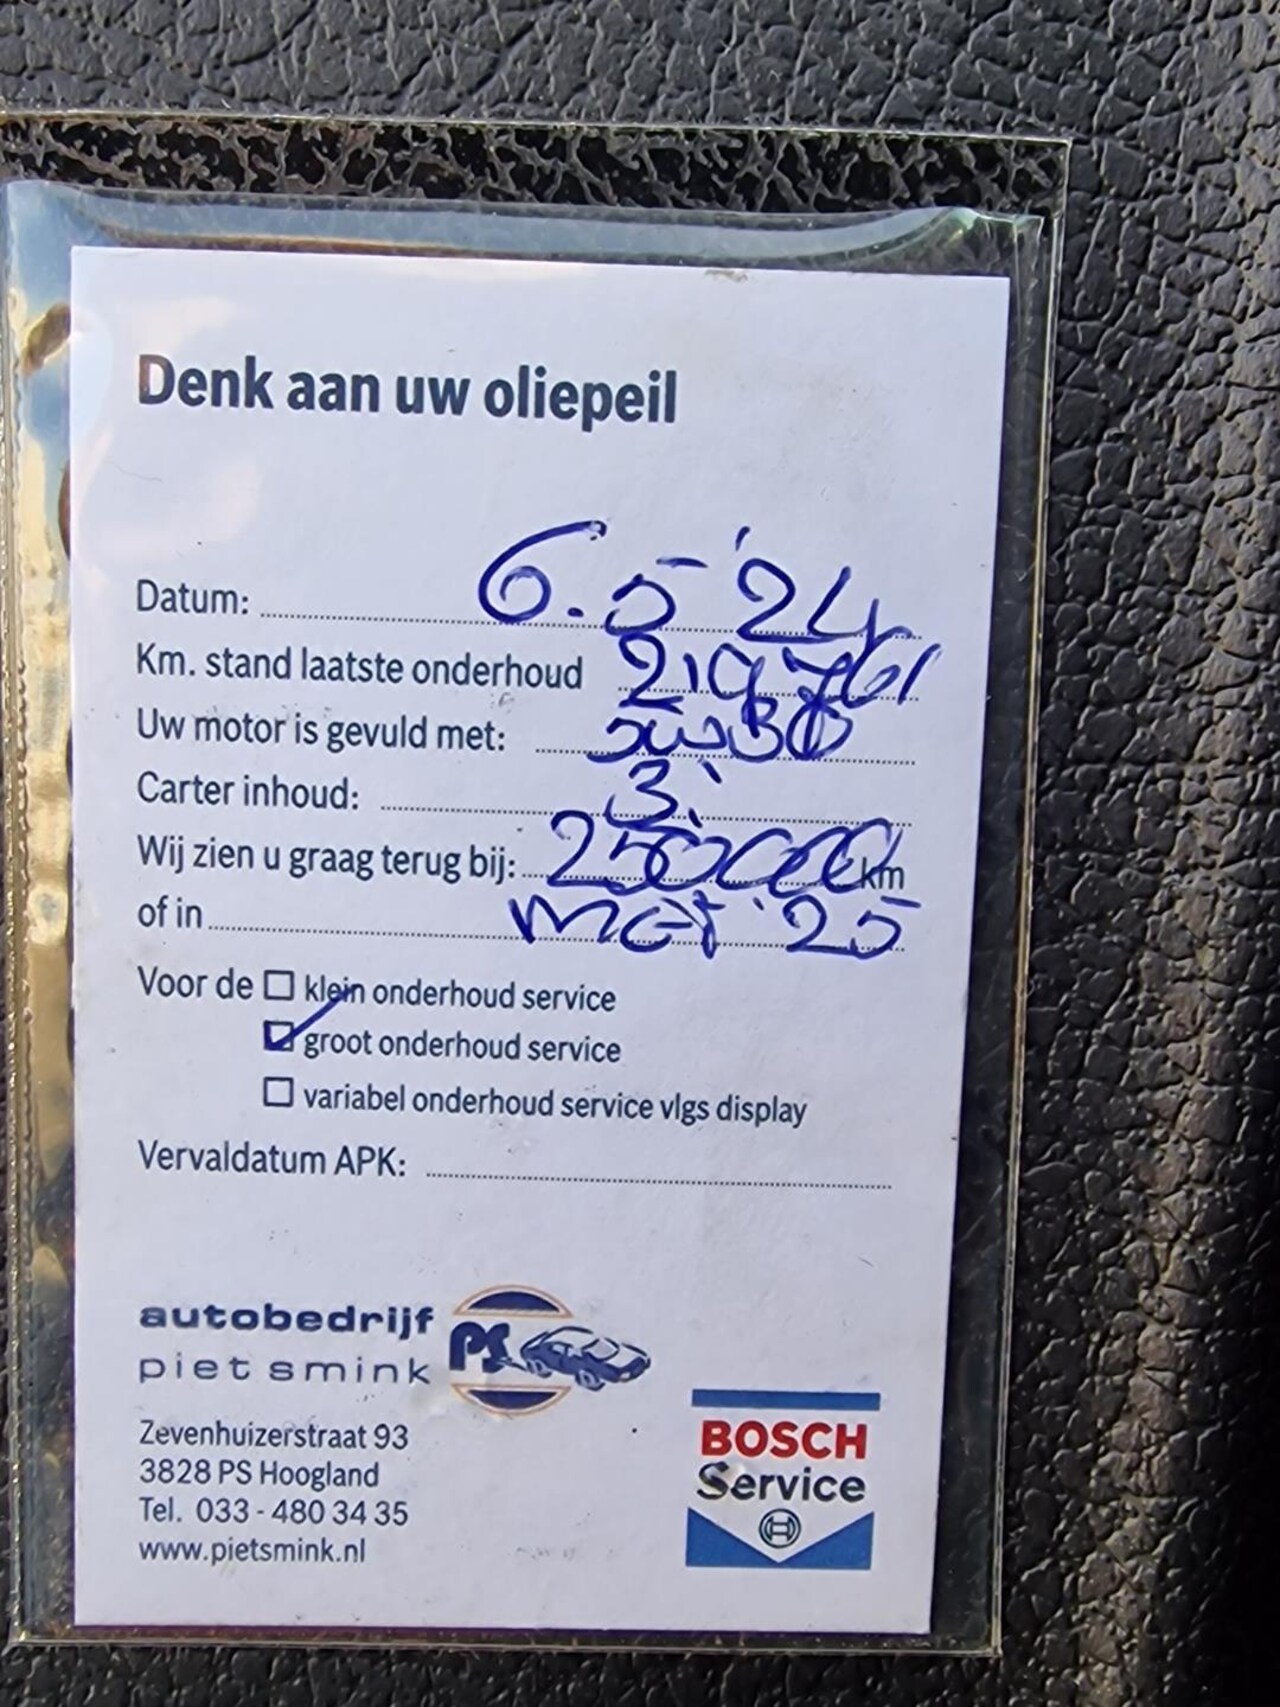 Denk aan uw oliepeil
Datum: 6.5 '24
Km. stand laatste onderhoud 219761
Uw motor is gevuld met: 5W30
Carter inhoud: 3.
Wij zien u graag terug bij: 250000 km
of in mei '25
Voor de ☐ klein onderhoud service
☑ groot onderhoud service
☐ variabel onderhoud service vlgs display
Vervaldatum APK:
autobedrijf
piet smink
PS
Zevenhuizerstraat 93
3828 PS Hoogland
Tel. 033 - 480 34 35
www.pietsmink.nl
BOSCH
Service